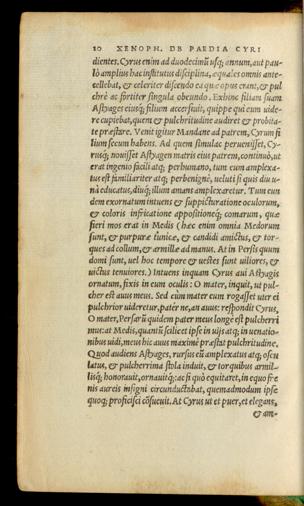 20 XENOPH. DE PAEDIA CYRI
dientes. Cyrus enim ad duodecimũ usq; annum, aut pau-
lò amplius hac institutus disciplina, æquales omnis ante-
cellebat, & celeriter discendo ea quæ opus erant, & pul
chrè ac fortiter singula obeundo. Exhinc filiam suam
Astyages eiusq; filium accersuit, quippe qui eum uide-
re cupiebat, quem & pulchritudine audiret & probita-
te præstare. Venit igitur Mandane ad patrem, Cyrum fi
lium secum habens. Ad quem simulac peruenisset, Cy-
rusq; nouisset Astyagen matris eius patrem, continuò, ut
erat ingenio facili atq; perhumano, tum eum amplexa-
tus est familiariter atq; perbenignè, ueluti si quis diu u-
nà educatus, diuq; illum amans amplexaretur. Tum eun
dem exornatum intuens & suppicturatione oculorum,
& coloris infricatione appositioneq; comarum, quæ
fieri mos erat in Medis (hæc enim omnia Medorum
sunt, & purpuræ tunicæ, & candidi amictus, & tor-
ques ad collum, & armillæ ad manus. At in Persis quum
domi sunt, uel hoc tempore & uestes sunt uiliores, &
uictus tenuiores.) Intuens inquam Cyrus aui Astyagis
ornatum, fixis in eum oculis: O mater, inquit, ut pul-
cher est auus meus. Sed eũm mater eum rogasset uter ei
pulchrior uideretur, pater ne, an auus: respondit Cyrus,
O mater, Persarũ quidem pater meus longè est pulcherri
mus: at Medis, quantũ scilicet ipse in uijs atq; in uenatio-
nibus uidi, meus hic auus maximè præstat pulchritudine.
Quod audiens Astyages, rursus eũ amplexatus atq; oscu
latus, & pulcherrima stola induit, & torquibus armil-
lisq; honorauit, ornauitq;: ac si quò equitaret, in equo fre
nis aureis insigni circunductabat, quemadmodum ipse
quoq; proficisci cõsueuit. At Cyrus ut et puer, et elegans,
& am-